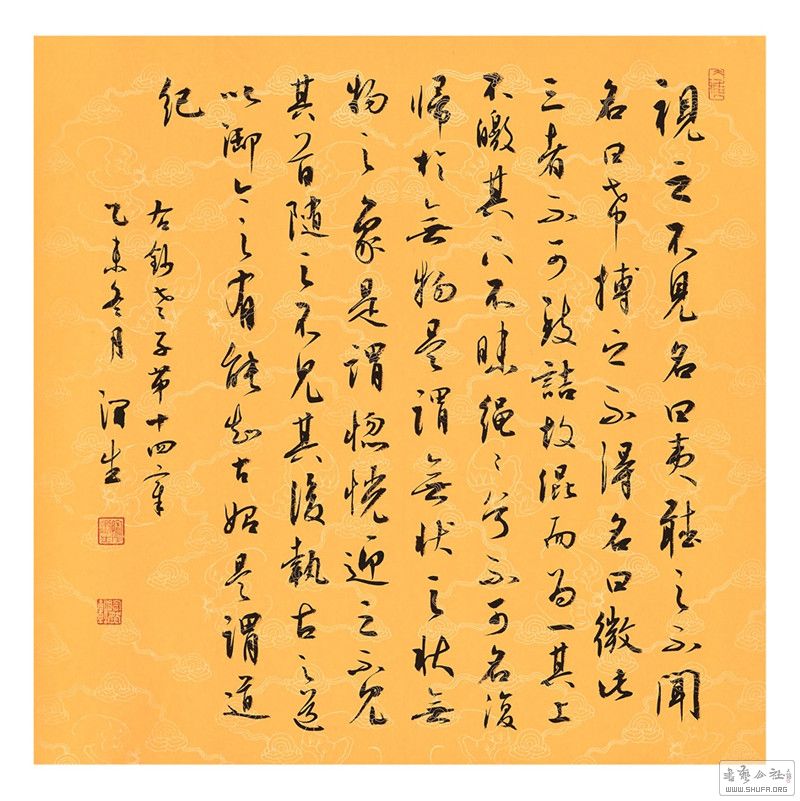 視之不見名曰夷聽之不聞
名曰希搏之不得名曰微此
三者不可致詰故混而為一其上
不皦其下不昧繩繩兮不可名復
歸於無物是謂無狀之狀無
物之象是謂惚恍迎之不見
其首隨之不見其後執古之道
以御今之有能知古始是謂道
紀
右鈔老子第十四章
乙未冬月
WWW.SHUFA.ORG